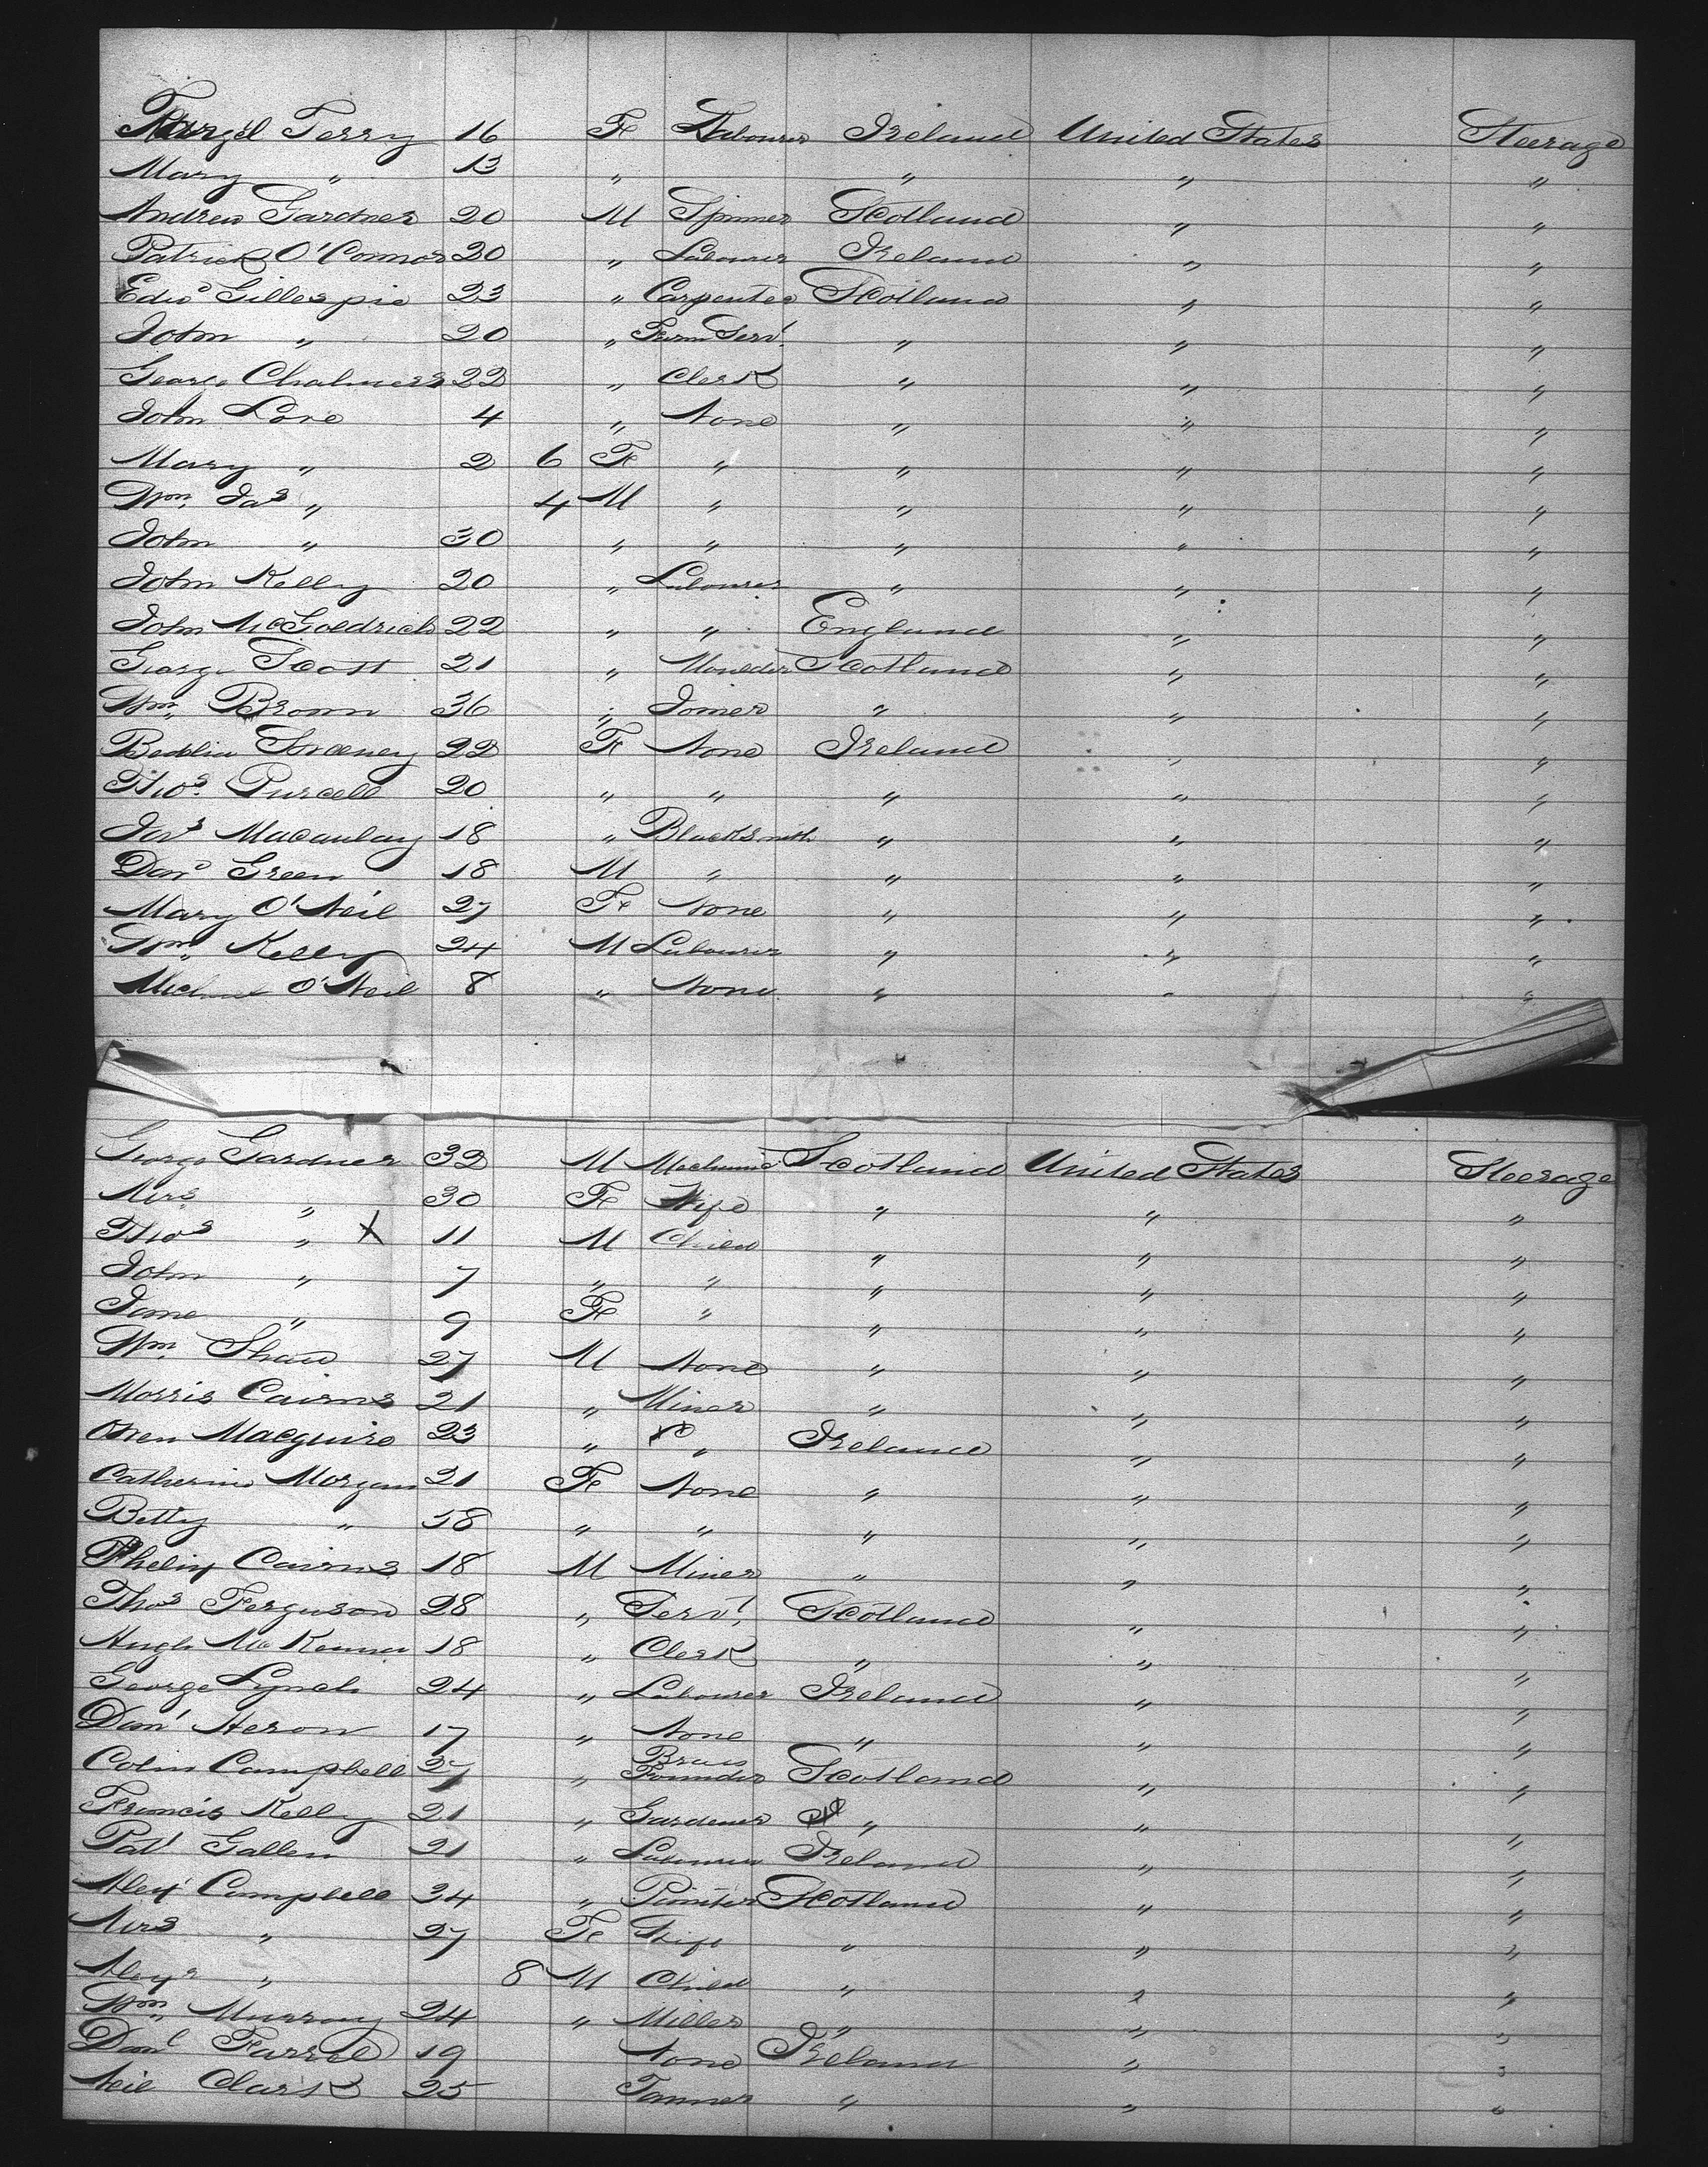 Marg't Terry 16 Fe Labourer Ireland United States Steerage
Mary " 13 " " " "
Andrew Gardner 20 M Spinner Scotland " "
Patrick O'Connor 20 " Labourer Ireland " "
Edwd Gillespie 23 " Carpenter Scotland " "
John " 20 " Farm Servt " " "
George Chalmers 22 " Clerk " " "
John Love 4 " None " " "
Mary " 2 6 Fe " " " "
Wm. Jas " 4 M " " " "
John " 30 " " " " "
John Kelly 20 " Labourer " " "
John McGoldrick 22 " " England " "
George Scott 21 " Moulder Scotland " "
Wm Brown 36 " Joiner " " "
Sweeney 22 Fe None Ireland " "
Thos. Purcell 20 " " " " "
Jas Macaulay 18 " Blacksmith " " "
Dan' Green 18 M " " " "
Mary O'Neil 27 Fe None " " "
Wm Kelly 24 M Labourer " " "
Michael O'Neil 8 " None " " "
George Gardner 32 M Mechanic Scotland United States Steerage
Mrs " 30 Fe Wife " " "
Thos " X 11 M Child " " "
John " 7 " " " " "
Jane " 9 Fe " " " "
Wm. Shaw 27 M None " " "
Morris Cairns 21 " Miner " " "
Owen Macguire 23 " " Ireland " "
Catherine Morgan 21 Fe None " " "
Betty " 58 " " " " "
Phelix Cairns 18 M Miner " " "
Thos Ferguson 28 " Servt. Scotland " "
Hugh McKenna 18 " Clerk " " "
George Lynch 24 " Labourer Ireland " "
Danl Heron 17 " None " " "
Colin Campbell 27 " Brass Founder Scotland " "
Francis Kelly 21 " Gardener " " "
Pat' Gallen 21 " Labourer Ireland " "
Alex' Campbell 34 " Painter Scotland " "
Mrs " 27 Fe Wife " " "
Alexr " 8 M Child " " "
Wm Murray 24 " Miller " " "
Danl Farrel 19 None Ireland " "
Neil Clark 25 Tanner " " "